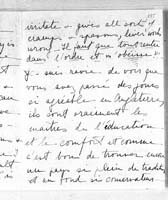 irritate - gives all sort of
cramps - spasms, liver work
wrong. Il faut que tout rentre
dans l'ordre et m'obéisse
J' suis ravie de voir que
vous avez passé des jours
si agréables en Angleterre,
ils sont vraiment les
maîtres de l'éducation
et le comfort et comme
c'est bon de trouver encore
un pays si plein de tradition
et en fond si conservateur.